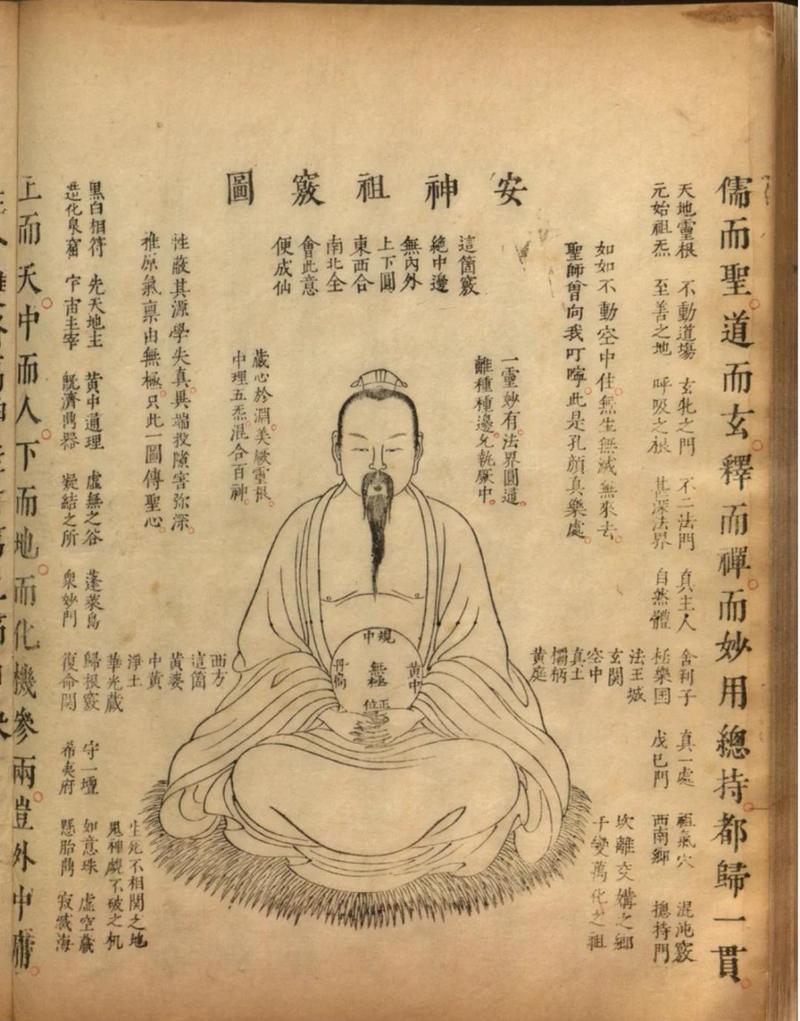 安神祖竅圖
儒而聖。道而玄。釋而禪。而妙用總持。都歸一貫。
天地靈根 不動道場 玄牝之門 不二法門 真主人 舍利子 真一處 祖氣穴 混沌竅
元始祖炁 至善之地 呼吸之根 甚深法界 自然體 極樂國 戊己門 西南鄉 摠持門
法王城
玄關
空中
真土
欛柄
黃庭
坎離交媾之鄉
千變萬化之祖
如如不動空中住。無生無滅無來去。
聖師曾向我叮嚀。此是孔顏真樂處。
一靈妙有。法界圓通。
離種種邊。允執厥中。
這箇竅
絕中邊
無內外
上下圓
東西合
南北全
會此意
便成仙
規中
黃中
無極
正位
丹扃
藏心於淵。美厥靈根。
中理五炁。混合百神。
性蔽其源學失真。異端投隙害彌深。
推原氣稟由無極。只此一圖傳聖心。
西方
這箇
黃婆
中黃
淨土
華光藏
生死不相關之地
鬼神覷不破之机
黑白相符 先天地主 黃中通理 虛無之谷 蓬萊島 歸根竅 守一壇 如意珠 虛空藏
造化泉窟 宇宙主宰 既濟鼎器 凝結之所 眾妙門 復命關 希夷府 懸胎鼎 寂滅海
上而天。中而人。下而地。而化機參兩。豈外中庸。